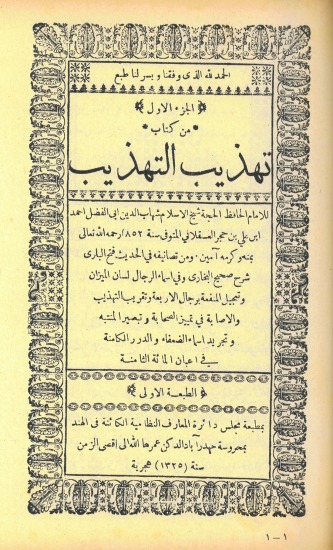 الحمد لله الذى وفقنا ويسر لنا طبع
الجزء الاول
من كتاب
تهذيب التهذيب
للامام الحافظ الحجة شيخ الاسلام شهاب الدين ابى الفضل احمد
ابن على بن حجر العسقلانى المتوفى سنة ٨٥٢ رحمه الله تعالى
بمنه وكرمه آمين ۰ ومن تصانيفه فى الحديث فتح البارى
شرح صحيح البخارى وفى اسماء الرجال لسان الميزان
وتعجيل المنفعة برجال الاربعة وتقريب التهذيب
والاصابة فى تمييز الصحابة وتبصير المنتبه
وتجريد اسماء الضعفاء والدرر الكامنة
فى اعيان المائة الثامنة
الطبعة الاولى
بمطبعة مجلس دائرة المعارف النظامية الكائنة فى الهند
بمحروسة حيدرآباد الدكن عمرها الله الى اقصى الزمن
سنة (١٣٢٥) هجرية
١ - ١